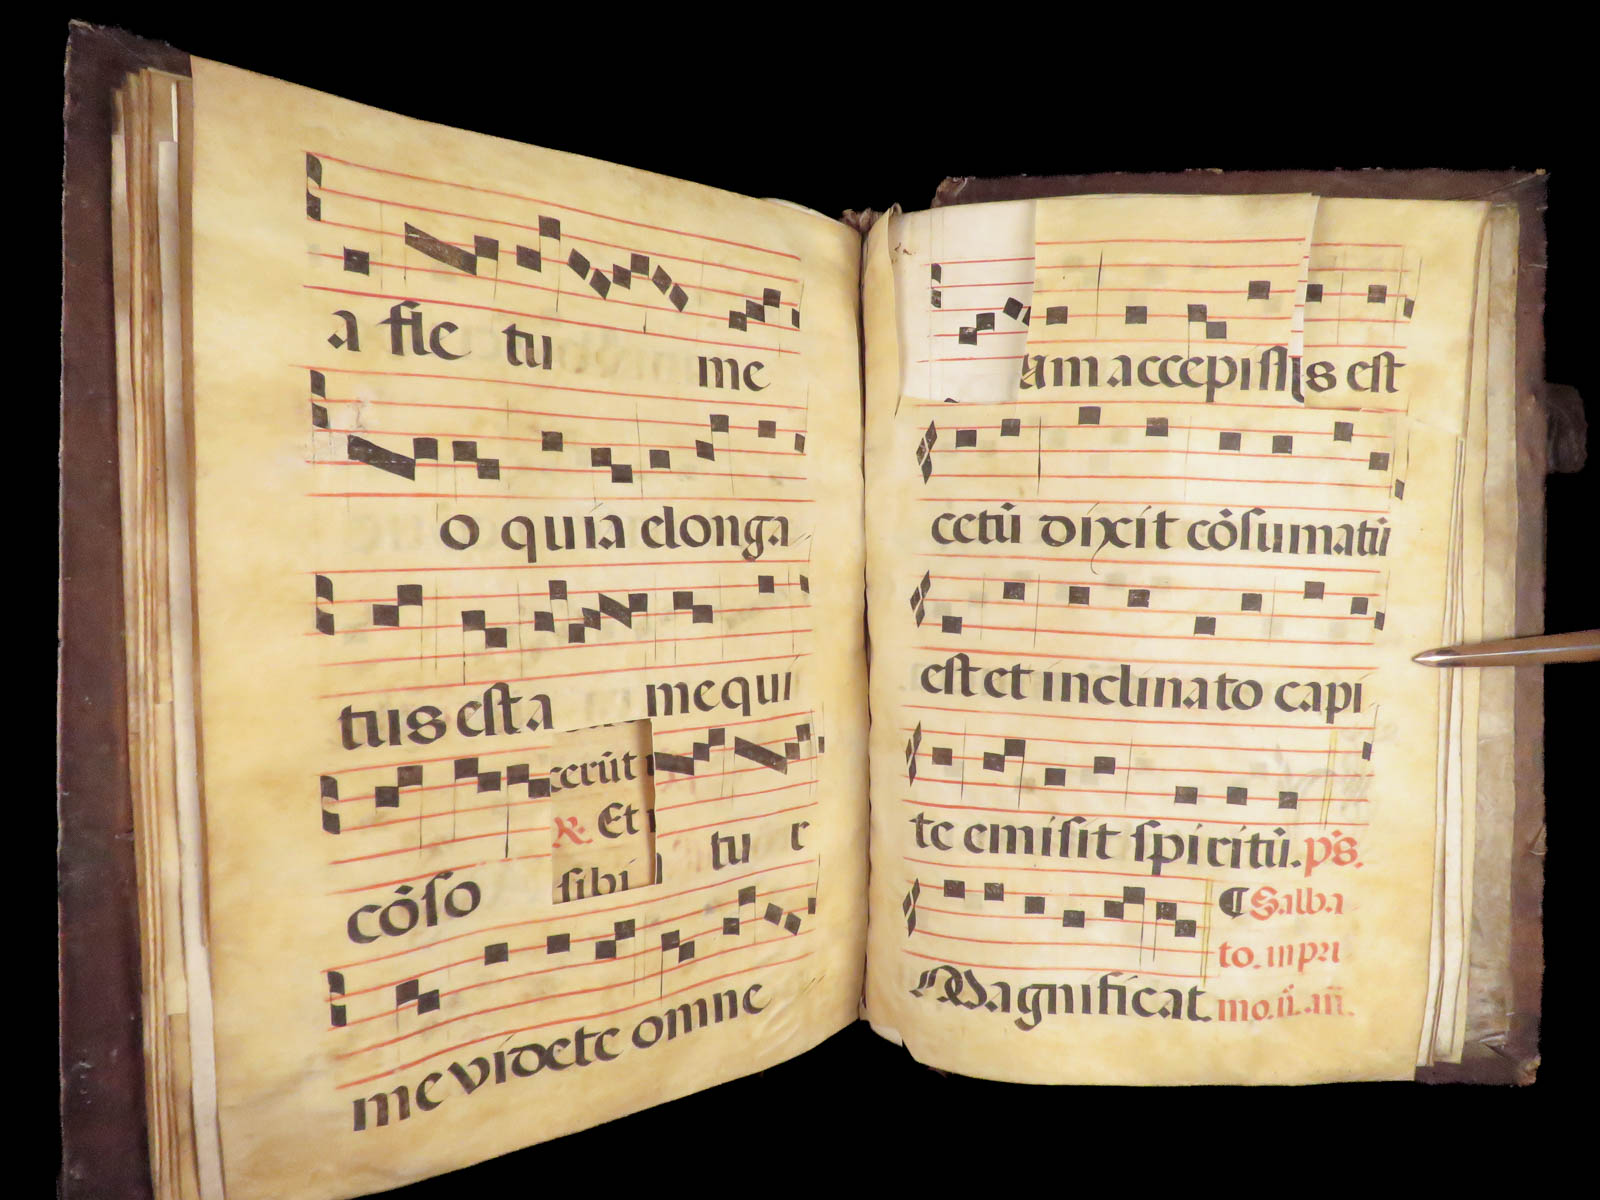 a fle tu me
o quia elonga
tus est a me qui
cerūt
℟. Et
cōso tu r
sibi
me videte omne
am accepiss s est
cetū dixit cōsumatū
est et inclinato capi
te emisit spiritū. ps.
¶ Salba
to. in pri
Magnificat mo. ū. añ.